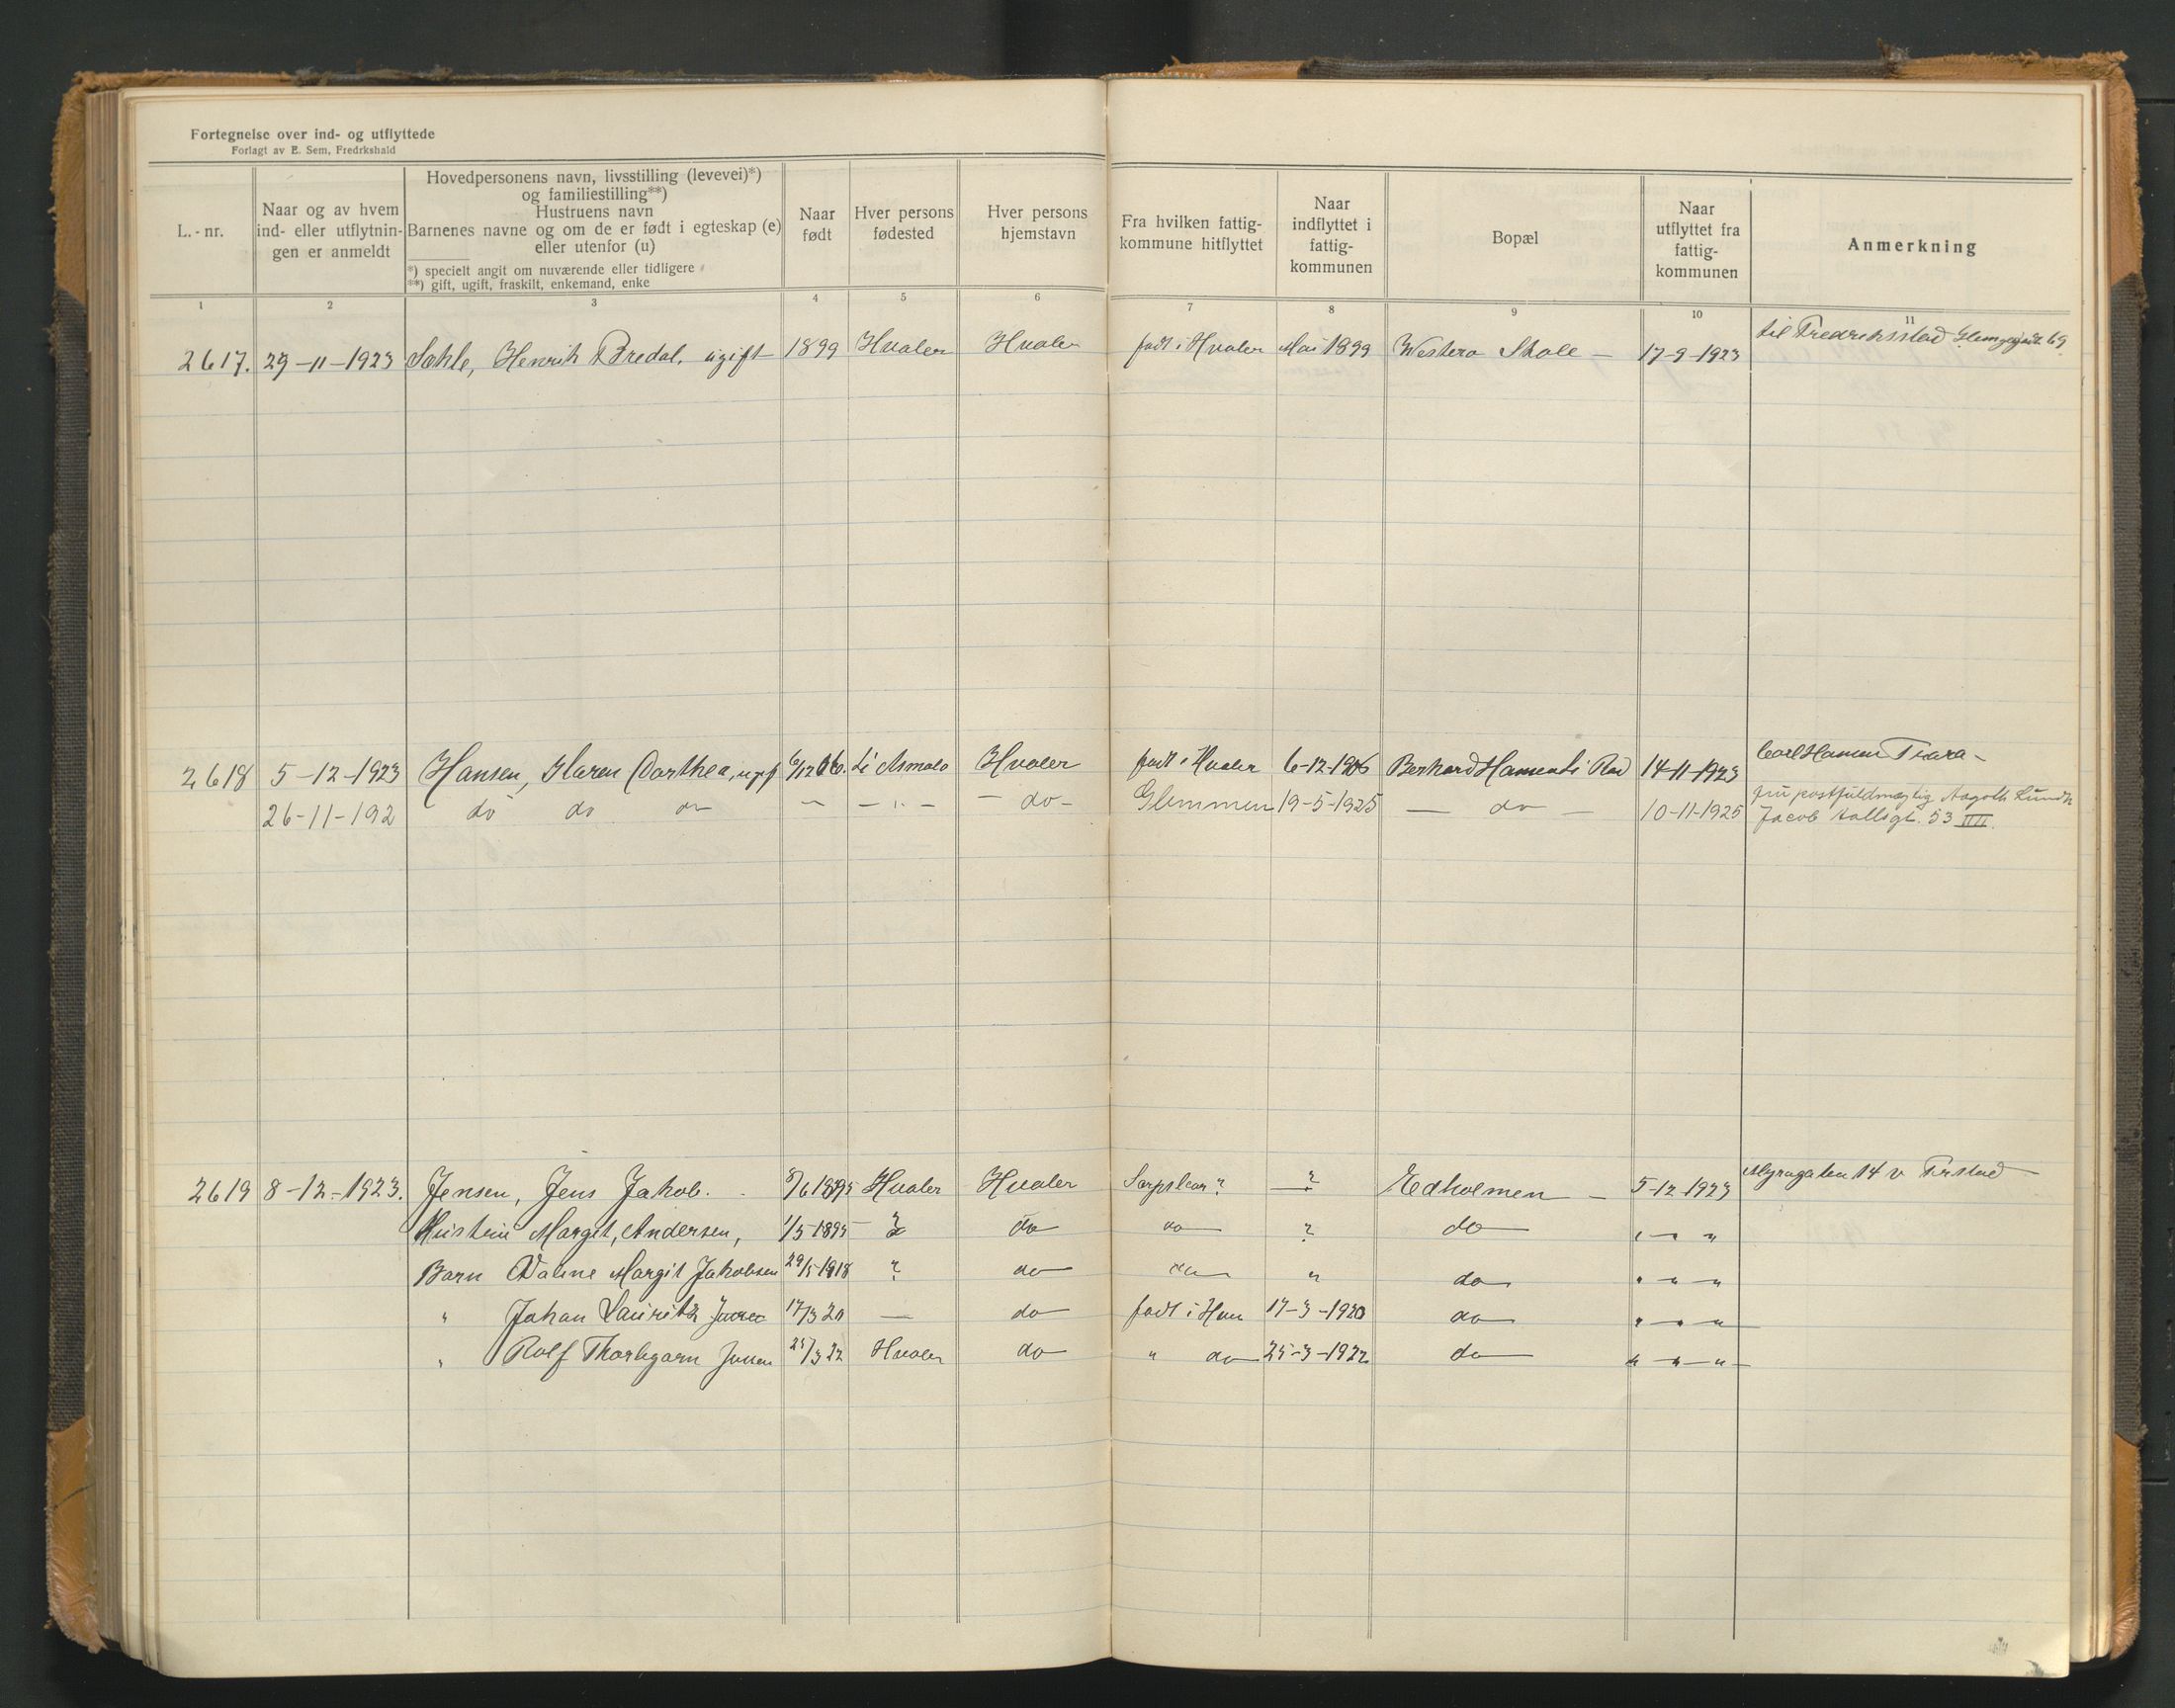 Fortegnelse over ind- og utflyttede
Forlagt av E. Sem, Fredrkshald
L.-nr.
Naar og av hvem ind- eller utflytnin- gen er anmeldt
Hovedpersonens navn, livsstilling (levevei)*)
og familiestilling**)
Hustruens navn
Barnenes navne og om de er født i egteskap (e)
eller utenfor (u)
*) specielt angit om nuværende eller tidligere
**) gift, ugift, fraskilt, enkemand, enke
Naar født
Hver persons fødested
Hver persons hjemstavn
Fra hvilken fattig- kommune hitflyttet
Naar indflyttet i fattig- kommunen
Bopæl
Naar utflyttet fra fattig- kommunen
Anmerkning
1 2 3 4 5 6 7 8 9 10 11
2617. 29-11-1923 Sahle, Henrik Bredal, ugift 1899 Hvaler Hvaler født i Hvaler Mai 1899 Westera Skole — 17-9-1923 til Fredriksstad 69
2618 5-12-1923 Hansen, Karen Dorthea, 6/12 06. Li Asmalo Hvaler født i Hvaler 6-12-1906 Berhard Hansen Li 14-11-1923 Carl Hansen Trara -
26-11-192 do do do — " — — do - Glemmen 19-5-1925 — do — 10-11-1925 fru postfuldmægtig Aagoth Lundh
Jacob Aallsgt. 53 III.
2619 8-12-1923. Jensen, Jens Jakob. 8/6 1895 Hvaler Hvaler Sarpsborg? ? Edholmen — 5-12-1923 Myragaten 14 v Frstad
Hustru Margit, Andersen, 1/5-1895 ? do do ? do " — "
Barn Margit Jakobsen 29/5-1918 ? do do " do " — " — "
" Johan Lauritz Jensen 17/3 20 — do født i Hva 17-3-1920 do " — " — "
" Rolf Thorbjørn Jensen 25/3 22 Hvaler do " do 25-3-1922 do " — " — "